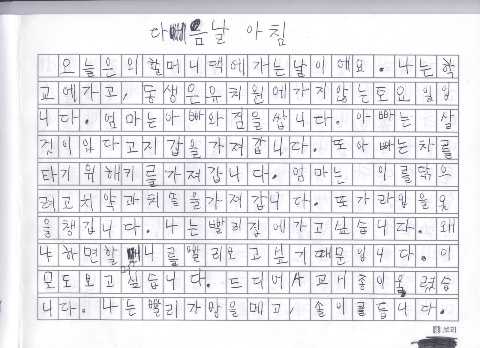 다음날 아침
오늘은 외할머니댁에가는날이에요. 나는학
교에가고, 동생은유치원에가지않는토요일입
니다. 엄마는아빠와짐을쌉니다. 아빠는 살
것이있다고지갑을가져갑니다. 또아빠는차를
타기위해키를가져갑니다. 엄마는 이를닦으
려고치약과치솔을가져갑니다. 또가라입을옷
을챙깁니다. 나는빨리집에가고싶습니다. 왜
냐하면할머니를빨리보고싶기때문입니다. 이
모도보고싶습니다. 드디어 종이울렸습
니다. 나는빨리가방을메고, 솔이콜듭니다.
보리